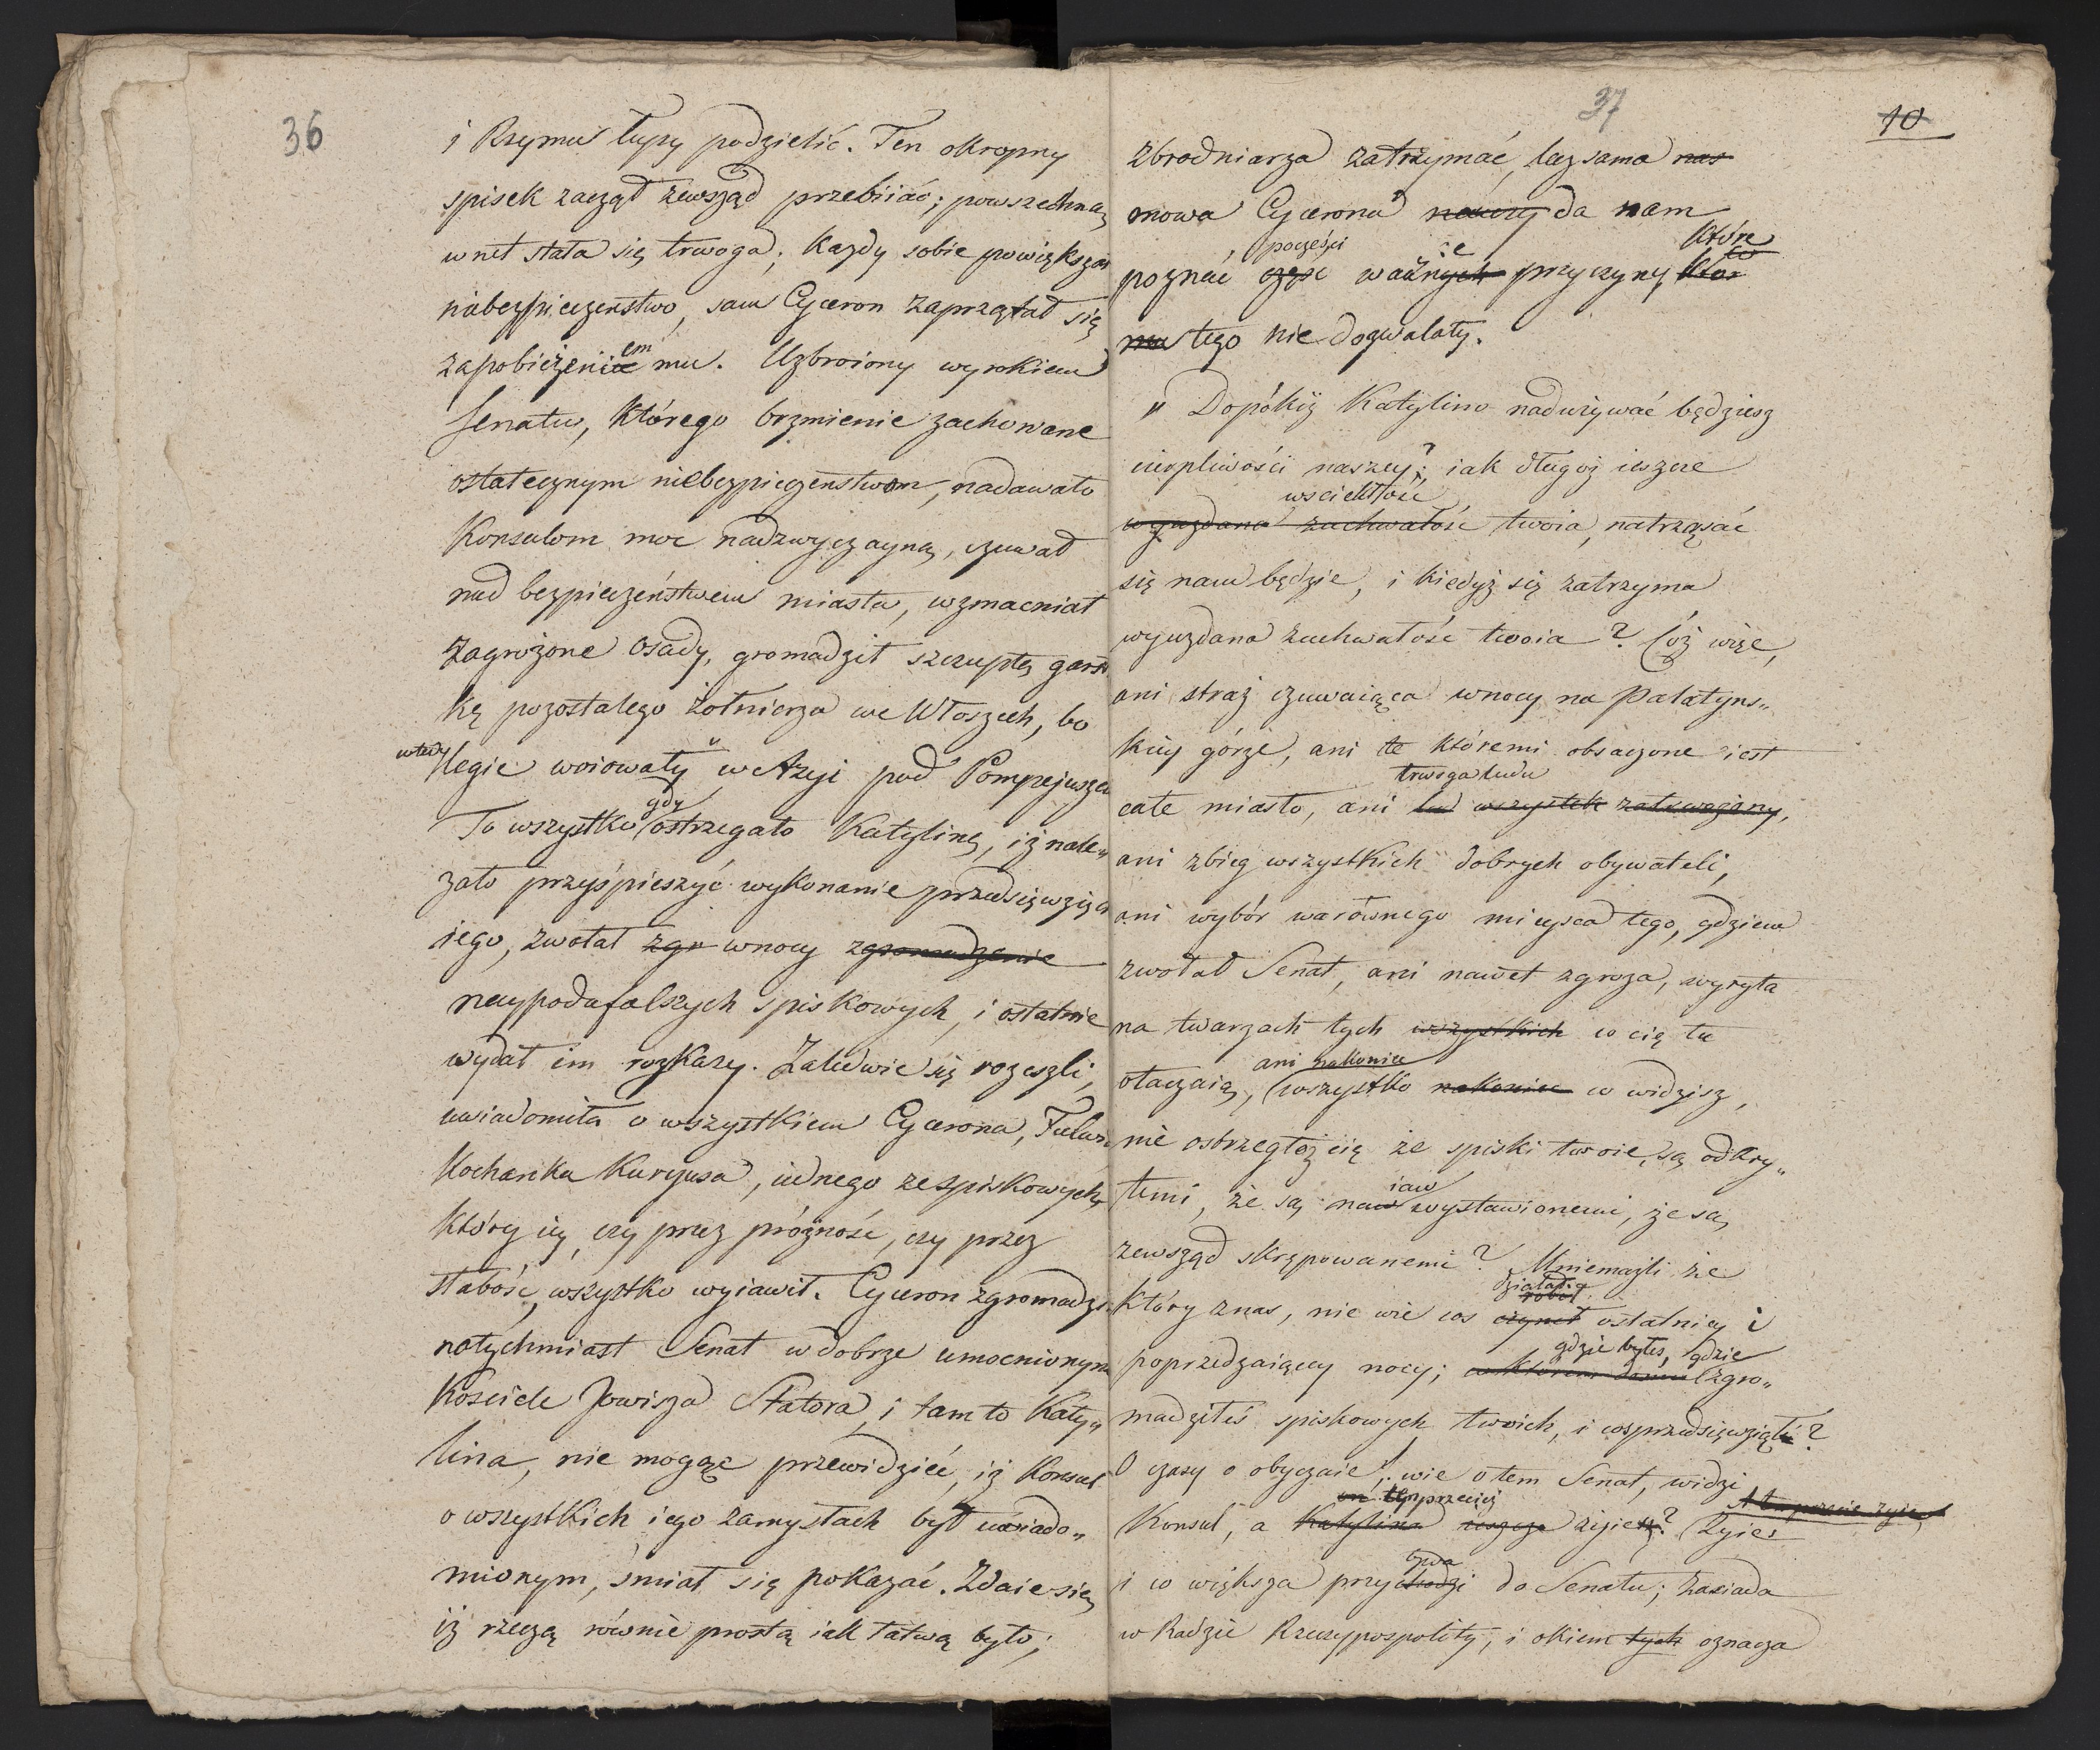 36
i Rzymu łupy podzielić. Ten okropny
spisek zaczął zewsząd przebiiać; powszechną
wnet stała się trwoga; każdy sobie powiększał
niebezpieczeństwo, sam Cyceron zaprzątał się
em
zapobieżenie mu. Uzbroiony wyrokiem
Senatu, którego brzmienie zachowane
ostatecznym niebezpieczeństwom, nadawało
Konsulom moc nadzwyczayną, czuwał
nad bezpieczeństwem miasta, wzmacniał
zagrożone osady, gromadził szczupłą garst
kę pozostałego żołnierza we Włoszech, bo
wtedy legie woiowały w Azyi pod Pompejuszem
gdy
To wszystko ostrzegało Katylinę, iż nale„
żało przyśpieszyć wykonanie przedsięwzięcia
iego, zwołał zgr wnocy zgromadzenie
naypodufalszych spiskowych, i ostatnie
wydał im rozkazy. Zaledwie się rozeszli,
uwiadomiła o wszystkiem Cycerona, Fulwia
Kochanka Kuryusa, iednego ze spiskowych,
który iey, czy przez próżność, czy przez
słabość, wszystko wyiawił. Cyceron zgromadził
natychmiast Senat w dobrze umocnionym
Kościele Jowisza Statora, i tam to Katy„
lina, nie mogąc przewidzieć, iż Konsul
o wszystkich iego zamysłach był uwiado„
mionym, śmiał się pokazać. Zdaie się,
iż rzeczą równie prostą iak łatwą było;
37
10
zbrodniarza zatrzymać, lecz sama nas
mowa Cycerona nauczy da nam
poczęści
ie
które
poznać część ważnych przyczyny, któr
mu tego nie dozwalały.
„ Dopókiż Katylino nadużywać będziesz
cierpliwości naszey?; iak długoż ieszcze
wściekłość
wyuzdana zuchwałość twoia, natrząsać
się nam będzie, i kiedyż się zatrzyma
wyuzdana zuchwałość twoia? Cóż więc,
ani straż czuwaiąca wnocy na Palatyns„
kiey górze, ani te któremi obsaczone iest
trwoga ludu
całe miasto, ani lud wszystek zatrwożony,
ani zbieg wszystkich dobrych obywateli,
ani wybór warównego mieysca tego, gdziem
zwołał Senat, ani nawet zgroza, wyryta
na twarzach tych wszystkich co cię tu
ani nakoniec
otaczaią, wszystko nakoniec co widzisz,
nie ostrzegłoż cię że spiski twoie, są odkry„
iaw
temi, że są na wystawionemi, że są
zewsząd skrępowanemi? Mniemaszli że
działał
robił
który znas, nie wie coś czynił ostatniey i
gdzie byłeś, gdzie
poprzedzaiącey nocy; w którem domu zgro„
madziłeś spiskowych twoich, i coś przedsięwziął?
O czasy o obyczaie!, wie o tem Senat, widzi
on ten przecież
A ten przecie żyie,
Konsul, a Katylina ieszcze żyiesz? Żyies
bywa
i co większa przychodzi do Senatu; zasiada
w Radzie Rzeczypospolity, i okiem tych oznacza